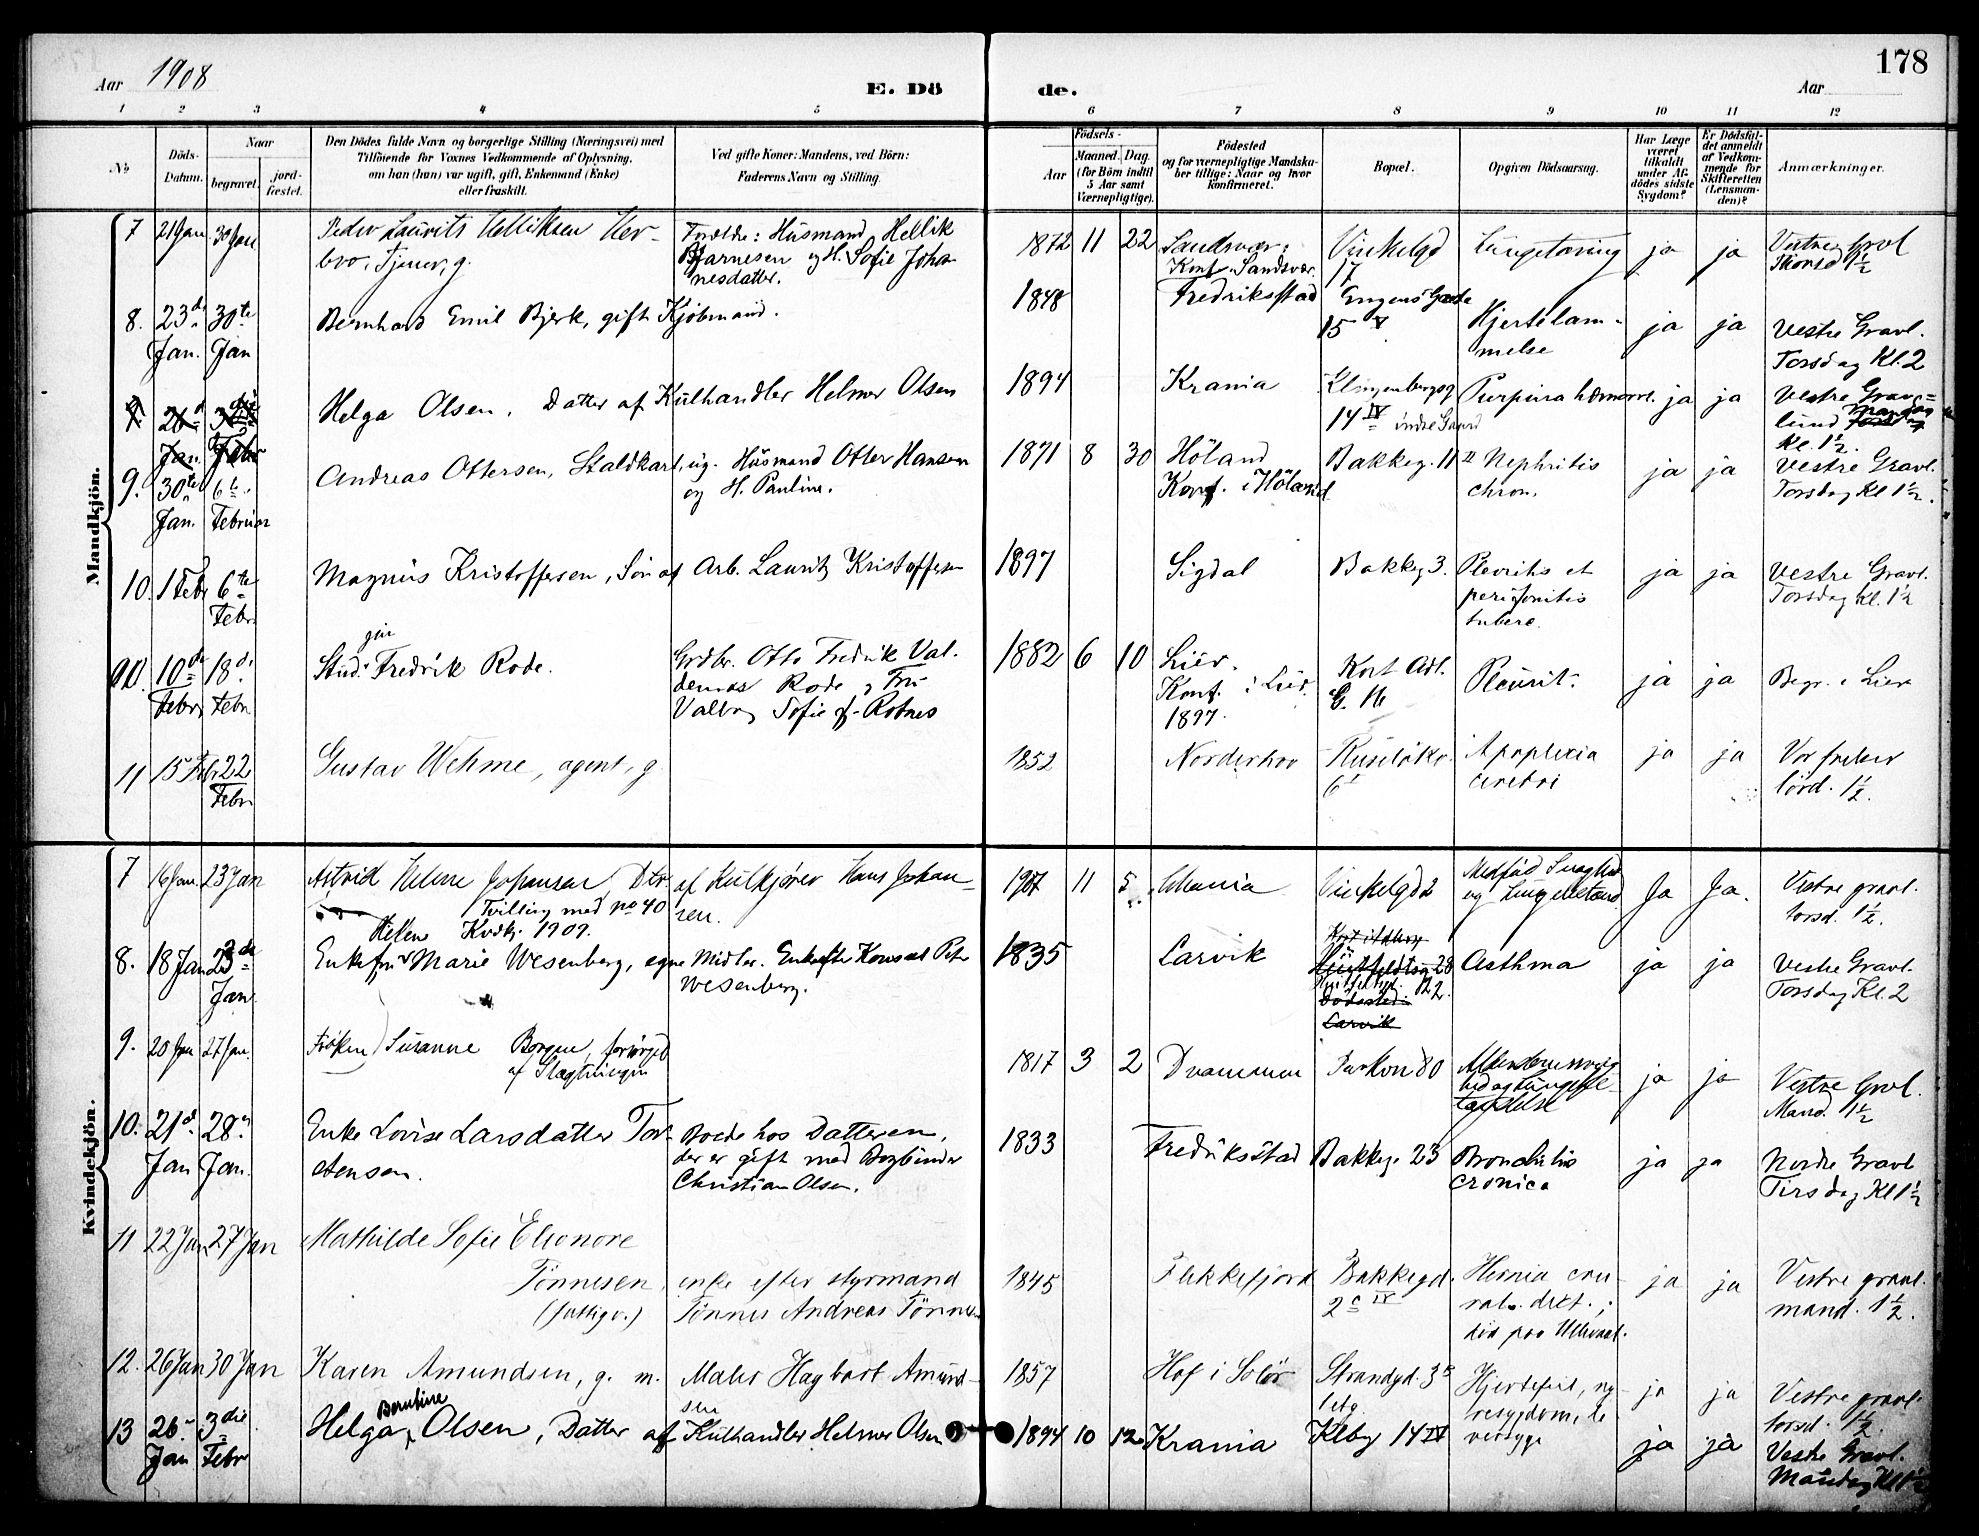 178
Aar 1908
E. Dö
de.
Aar
1 2 3 4 5 6 7 8 9 10 11 12
No
Döds-
Datum.
Naar
begravet.
jord-
fæstet.
Den Dödes fulde Navn og borgerlige Stilling (Næringsvei) med
Tilföiende for Voxnes Vedkommende af Oplysning,
om han (hun) var ugift, gift, Enkemand (Enke)
eller fraskilt.
Ved gifte Koner: Mandens, ved Börn:
Faderens Navn og Stilling.
Födsels-
Aar
Maaned. Dag.
(for Börn indtil
5 Aar samt
Værnepligtige).
Födested
og for værnepligtige Mandska-
ber tillige: Naar og hvor
konfirmeret.
Bopæl.
Opgiven Dödsaarsag.
Har Læge
været
tilkaldt
under Af-
dödes sidste
Sygdom?
Er Dödsfal-
det anmeldt
af Vedkom-
mende for
Skifteretten
(Lensman-
den)?
Anmærkninger.
Mandkjön.
7 21 Jan 30 Jan Peder Laurits Helliksen
Tjener, g.
Forældre: Husmand Hellik
Bjarnesen og H. Sofie Johan-
nesdatter.
1872 11 22 Sandsvær
Konf. Sandsvær.
17
Lungetæring ja ja Vestre Gravl
1½
8. 23de Jan. 30te Jan Bernhard Emil Bjerk, gift Kjöbmand.
1848 Fredriksstad Engens Gade
15 V
Hjertelam-
melse
ja ja Vestre Gravl.
Torsdag Kl. 2
Helga Olsen, Datter af Kulhandler Helmer Olsen
1894 Krania Klingenbergsg
14 IV indre Gaard
Purpura hæmorrh. ja ja Vestre Grav-
lund
Kl. 1½.
9. 30te Jan. 6te Februar Andreas Ottersen, Staldkarl, ug. Husmand Otter Hansen
og H. Pauline.
1871 8 30 Höland
Konf. i Höland
Bakkeg. 11 II Nephritis
chron.
ja ja Vestre Gravl.
Torsdag Kl 1½.
10. 1 Febr 6te Febr. Magnus Kristoffersen, Sön af Arb. Lauritz Kristoffersen
1897 Sigdal Bakkeg 3. Plevritis et
peritonitis
tuberc.
ja ja Vestre Gravl.
Torsdag Kl. 1½
10de Febr 18de Febr. Stud. jur Fredrik Rode.
Grdbr. Otto Fredrik Val-
demar Rode og Fru
Valborg Sofie f. Rotnes
1882 6 10 Lier.
Konf. i Lier.
1897.
Kort Adl.
G. 16
Pleurit. ja ja Begr. i Lier
11 15 Feb. 22 Febr. Gustav Wehme, agent, g.
1852 Norderhov Ruselökv.
6
Apoplexia
cerebri
ja ja Vor frelser
lörd. 1½.
Kvindekjön.
7 16 Jan. 23 Jan Astrid Helene Johansen, Dtr. af Kulkjörer Hans Johan-
sen.
Tvilling med no 40
Kvdkj. 1907.
1907 11 5 Chrania Vinkelgd 2 Medfød Svaghed
og
Ja Ja. Vestre gravl.
torsd. 1½.
8. 18 Jan 23de Jan Enkefru Helen Marie Wesenberg, egne Midler. Enke efter Konsul Petr
Wesenberg.
1835 Larvik
28
22.
Dödssted:
Larvik
Asthma ja ja Vestre Gravl.
Torsdag Kl. 2
9. 20 Jan 27 Jan. Fröken Susanne Borgen, forsörged
af Slægtninger
1817 3 2 Drammen Parkvn 80
ja ja Vestre Gravl.
Mand. 1½
10. 21de Jan 28de Jan. Enke Lovise Larsdatter Tor-
stensen.
Boede hos Datteren,
der er gift med Bogbinder
Christian Olsen.
1833 Fredriksstad Bakkeg. 23 Bronchitis
cronica
ja ja Nordre Gravl
Tirsdag Kl 1½
11 22 Jan. 27 Jan Mathilde Sofie Elionore
Tönnesen, enke efter styrmand
(fattigv.) Tönnes Andreas Tönnesen
1845 Flekkefjord Bakkegd.
2 c IV
Hernia cru-
ral. dext.;
död paa Ullevaal.
ja ja Vestre gravl.
mand. 1½.
12. 26 Jan 30 Jan Karen Amundsen, g. m. Maler Hagbart Amund-
sen
1857 Hof i Solör Strandgd. 3 b
Hjertefeil, ny-
resygdom, le-
versyge
ja ja Vestre gravl.
torsd. 1½.
13 26 Jan 3die Febr Helga Bernhine Olsen, Datter af Kulhandler Helmer Olsen
1894 10 12 Krania Klbg 14 IV ja ja Vestre Gravl.
Mandag Kl 1½